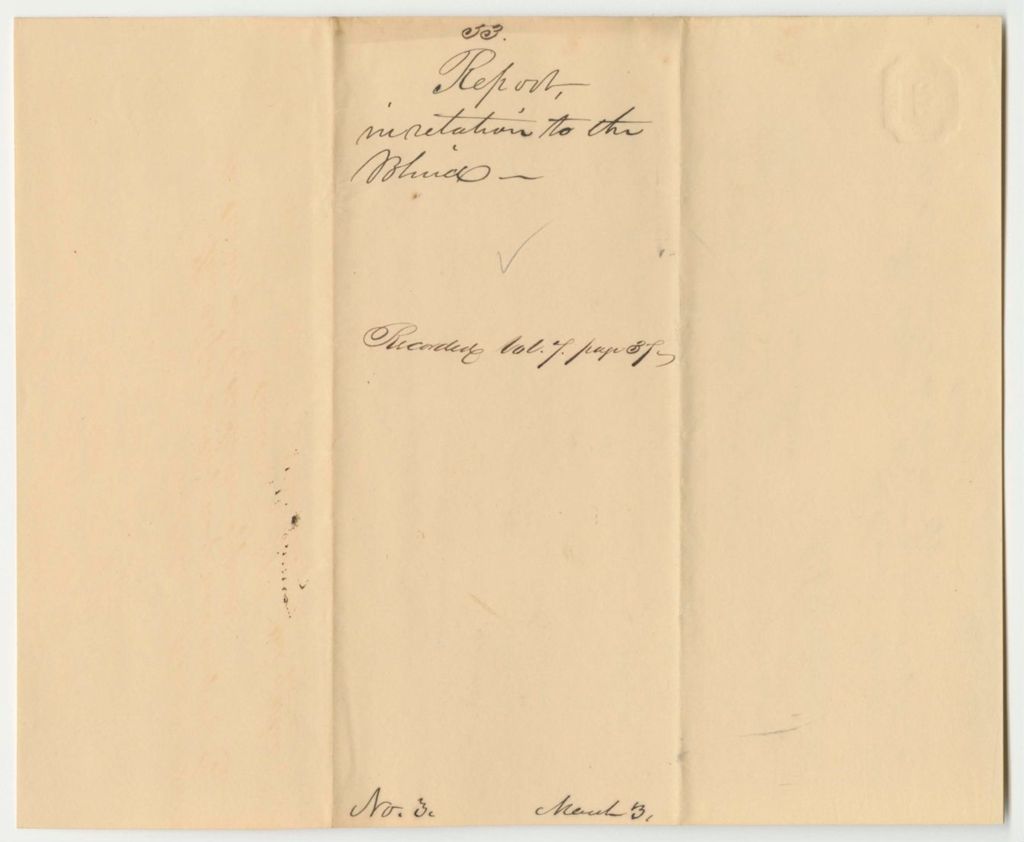 53.
Report,
in relation to the
Blind —
Recorded Vol. 7. page 37.
No. 3. March 3,